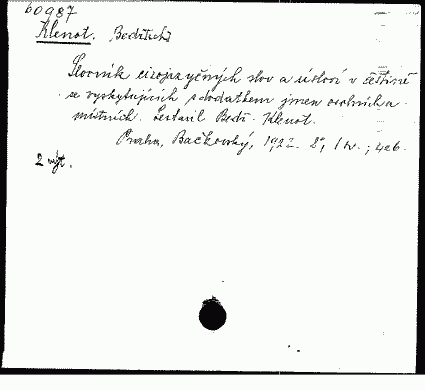 60987
Klenot. Bedřich
Slovník cizojazyčných slov a úsloví v češtině
se vyskytujících s dodatkem jmen osobních a
místních. Sestavil Bedř. Klenot.
Praha, Bačkovský, 1922. 8°, 1 sv.; 426.
2 výt.